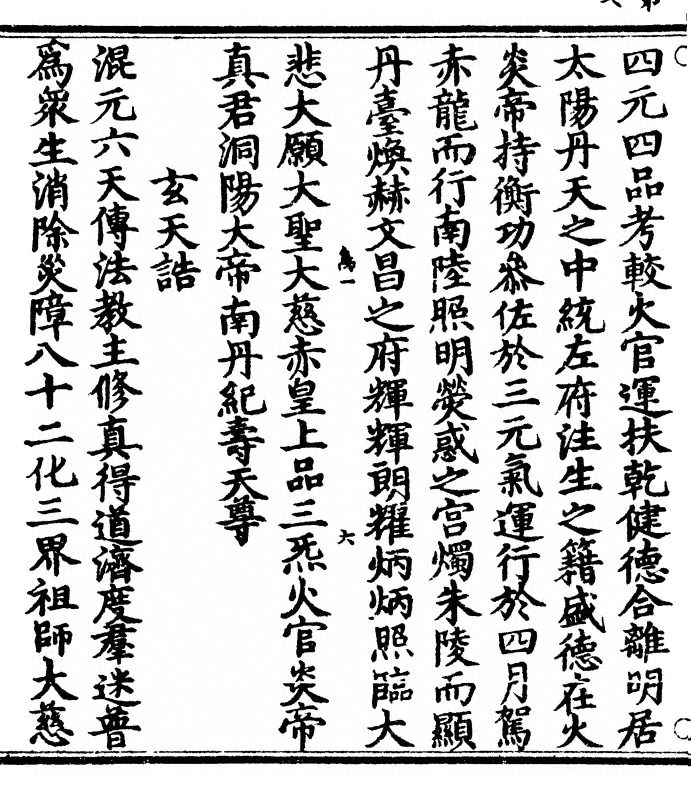 四元四品考較火官運扶乾健德合離明居
太陽丹天之中統左府注生之籍盛德在火
炎帝持衡功叅佐於三元氣運行於四月駕
赤龍而行南陸照明熒惑之宮燭朱陵而顯
丹臺煥赫文昌之府輝輝朗耀炳炳照臨大
萬一
六
悲大願大聖大慈赤皇上品三炁火官炎帝
真君洞陽大帝南丹紀壽天尊
玄天誥
混元六天傳法教主修真得道濟度羣迷普
為衆生消除災障八十二化三界祖師大慈